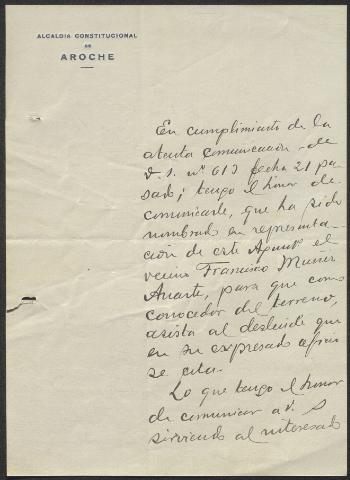 ALCALDIA CONSTITUCIONAL
DE
AROCHE
En cumplimiento de la
atenta comunicación de
V. S. nº 613 fecha 21 pa-
sado; tengo el honor de
comunicarle, que ha sido
nombrado en representa-
ción de este Ayuntº el
vecino Francisco Muñiz
para que como
conocedor del terreno,
asista al deslinde que
en su expresado oficio
se cita.
Lo que tengo el honor
de comunicar a V. S
sirviendo al interesado